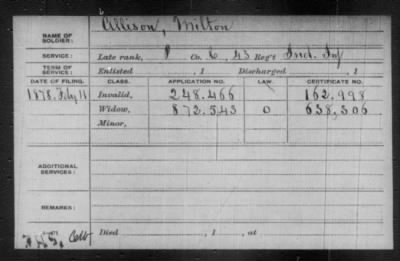 Allison, Milton
NAME OF SOLDIER:
SERVICE: Late rank, P Co. C, 43 Reg't Ind. Inf
TERM OF SERVICE: Enlisted , 1 Discharged , 1
DATE OF FILING. CLASS. APPLICATION NO. LAW. CERTIFICATE NO.
1878. Feby 11 Invalid, 248.466 162.998
Widow, 872.543 O 638,306
Minor,
ADDITIONAL SERVICES:
REMARKS:
Died , 1 , at